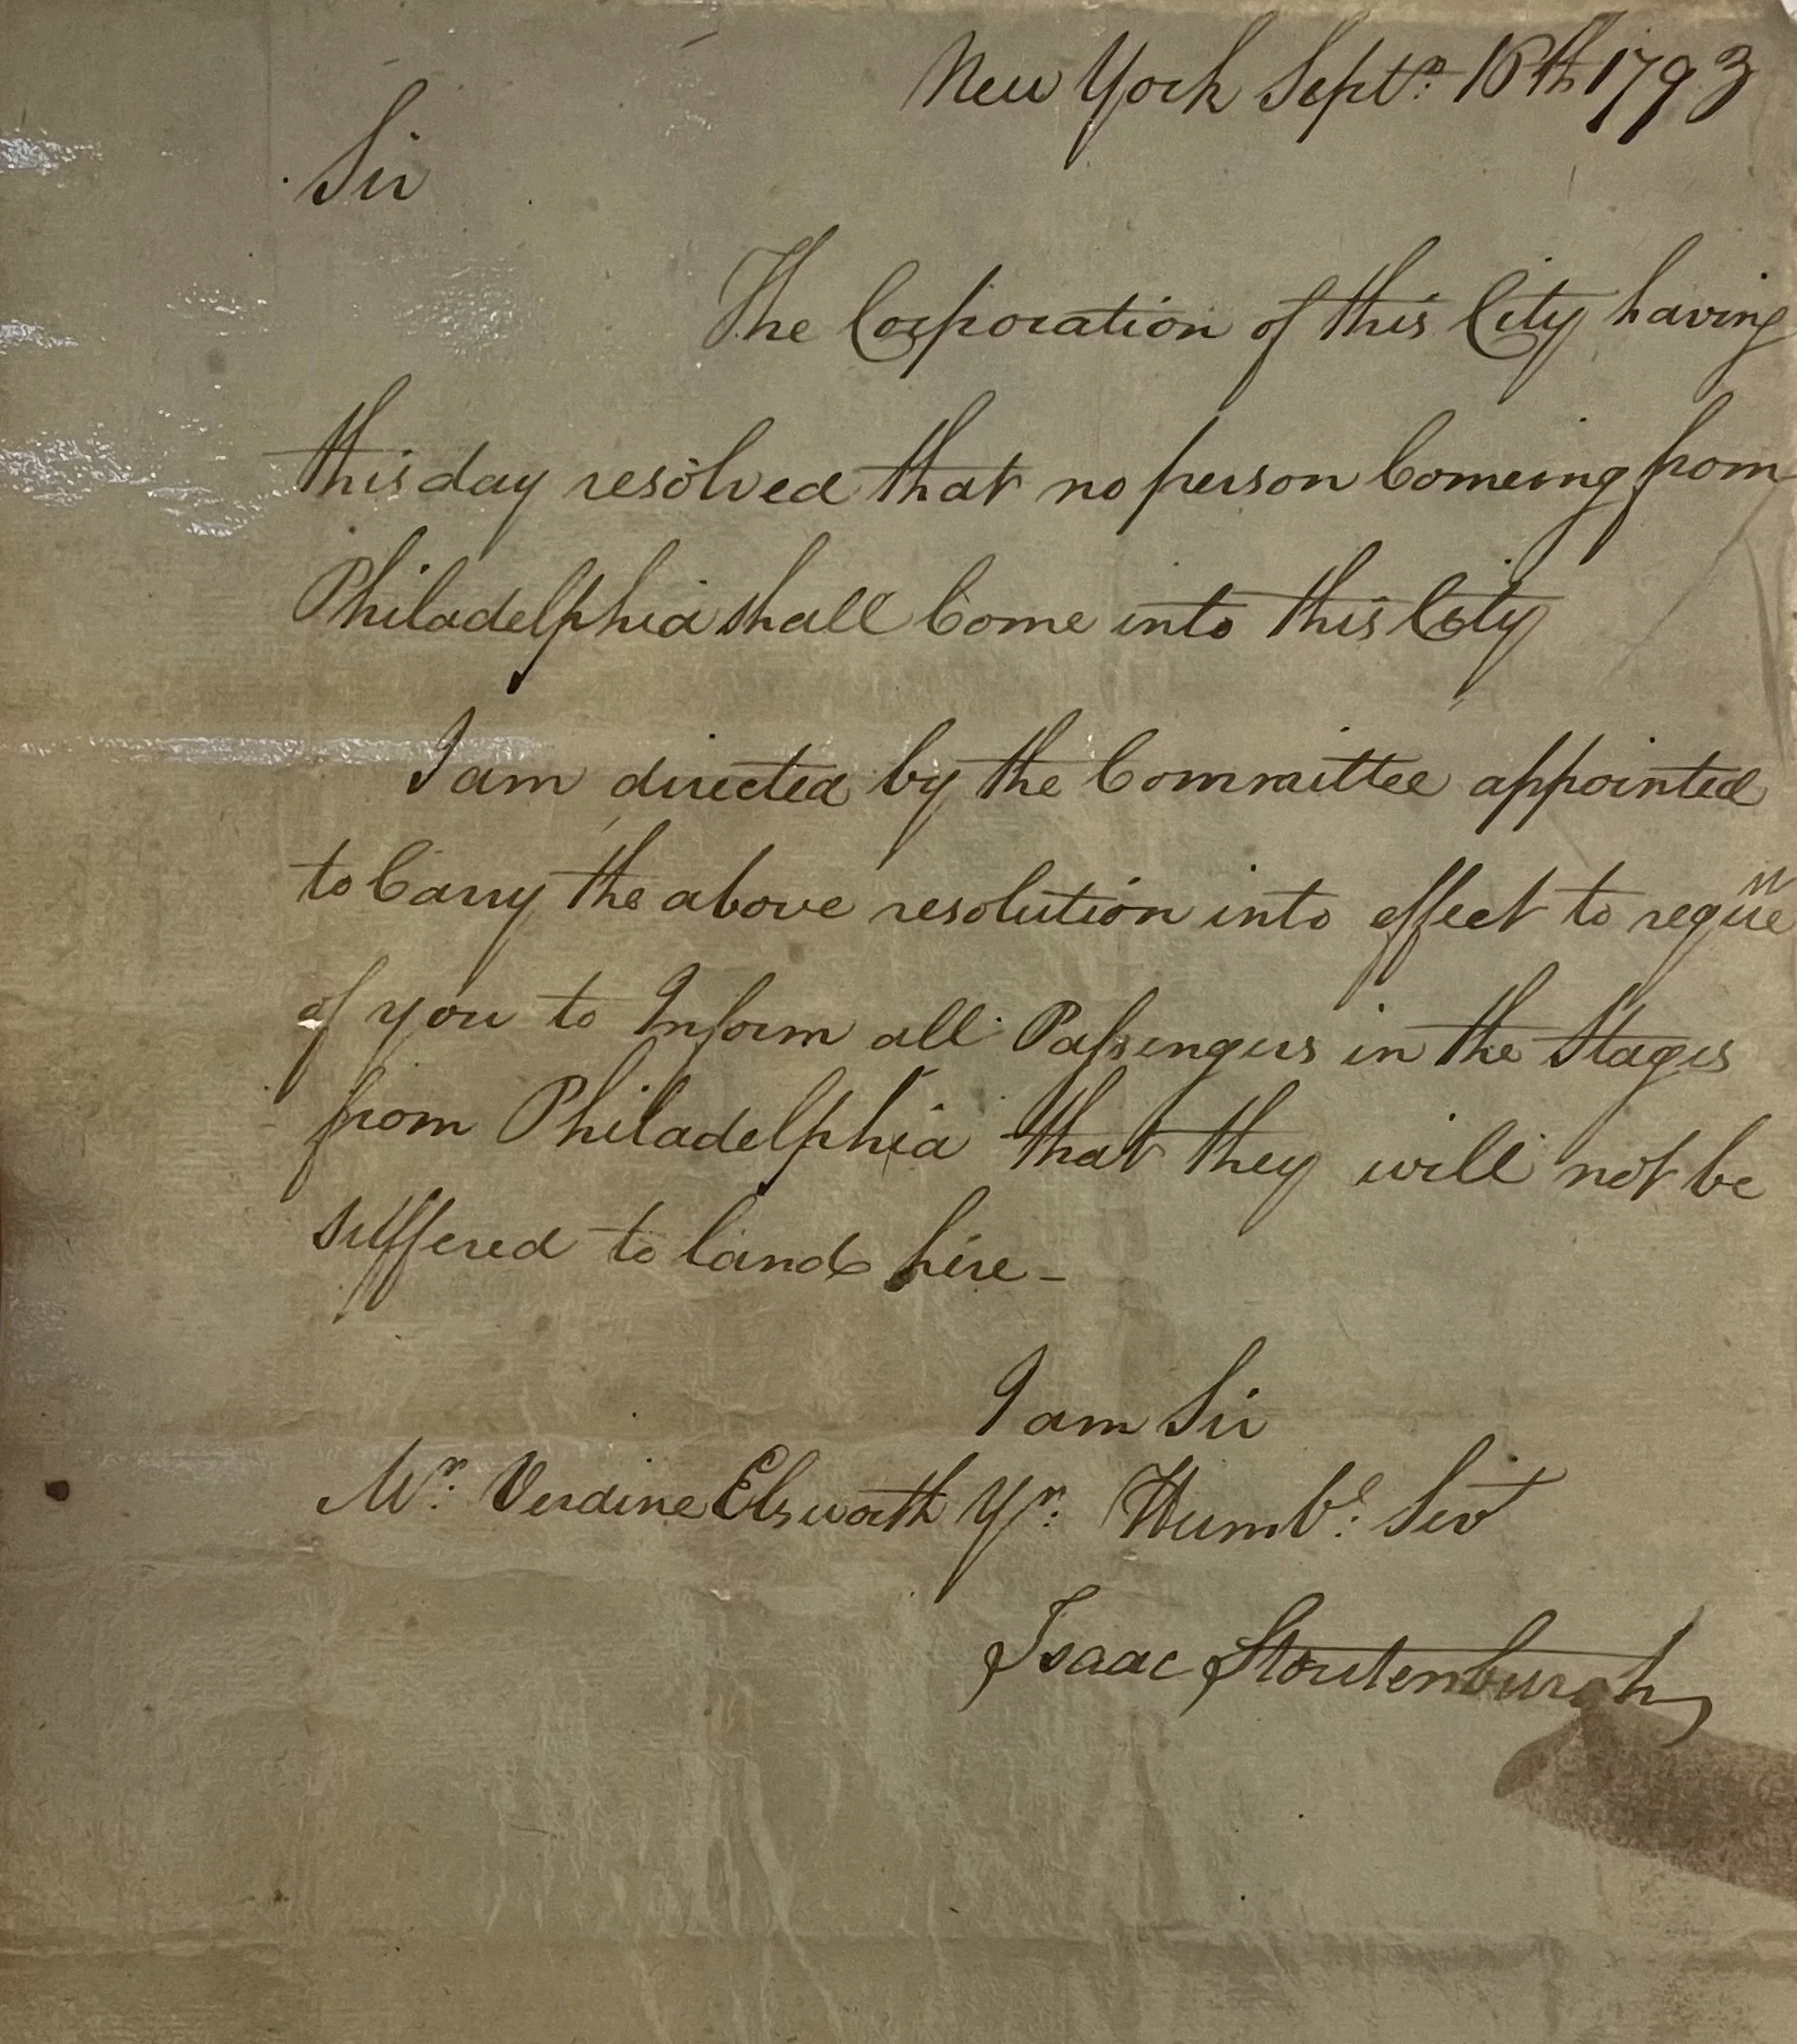 New York Septr. 16th 1793
Sir
The Corporation of this City having
this day resolved that no person Comeing from
Philadelphia shall Come into this City
I am directed by the Committee appointed
to Carry the above resolution into effect to reque
of you to Inform all Passengers in the Stages
from Philadelphia that they will not be
suffered to land here -
I am Sir
Mr. Verdine Elsworth Yr. Humbl. Servt
Isaac Stoutenburgh